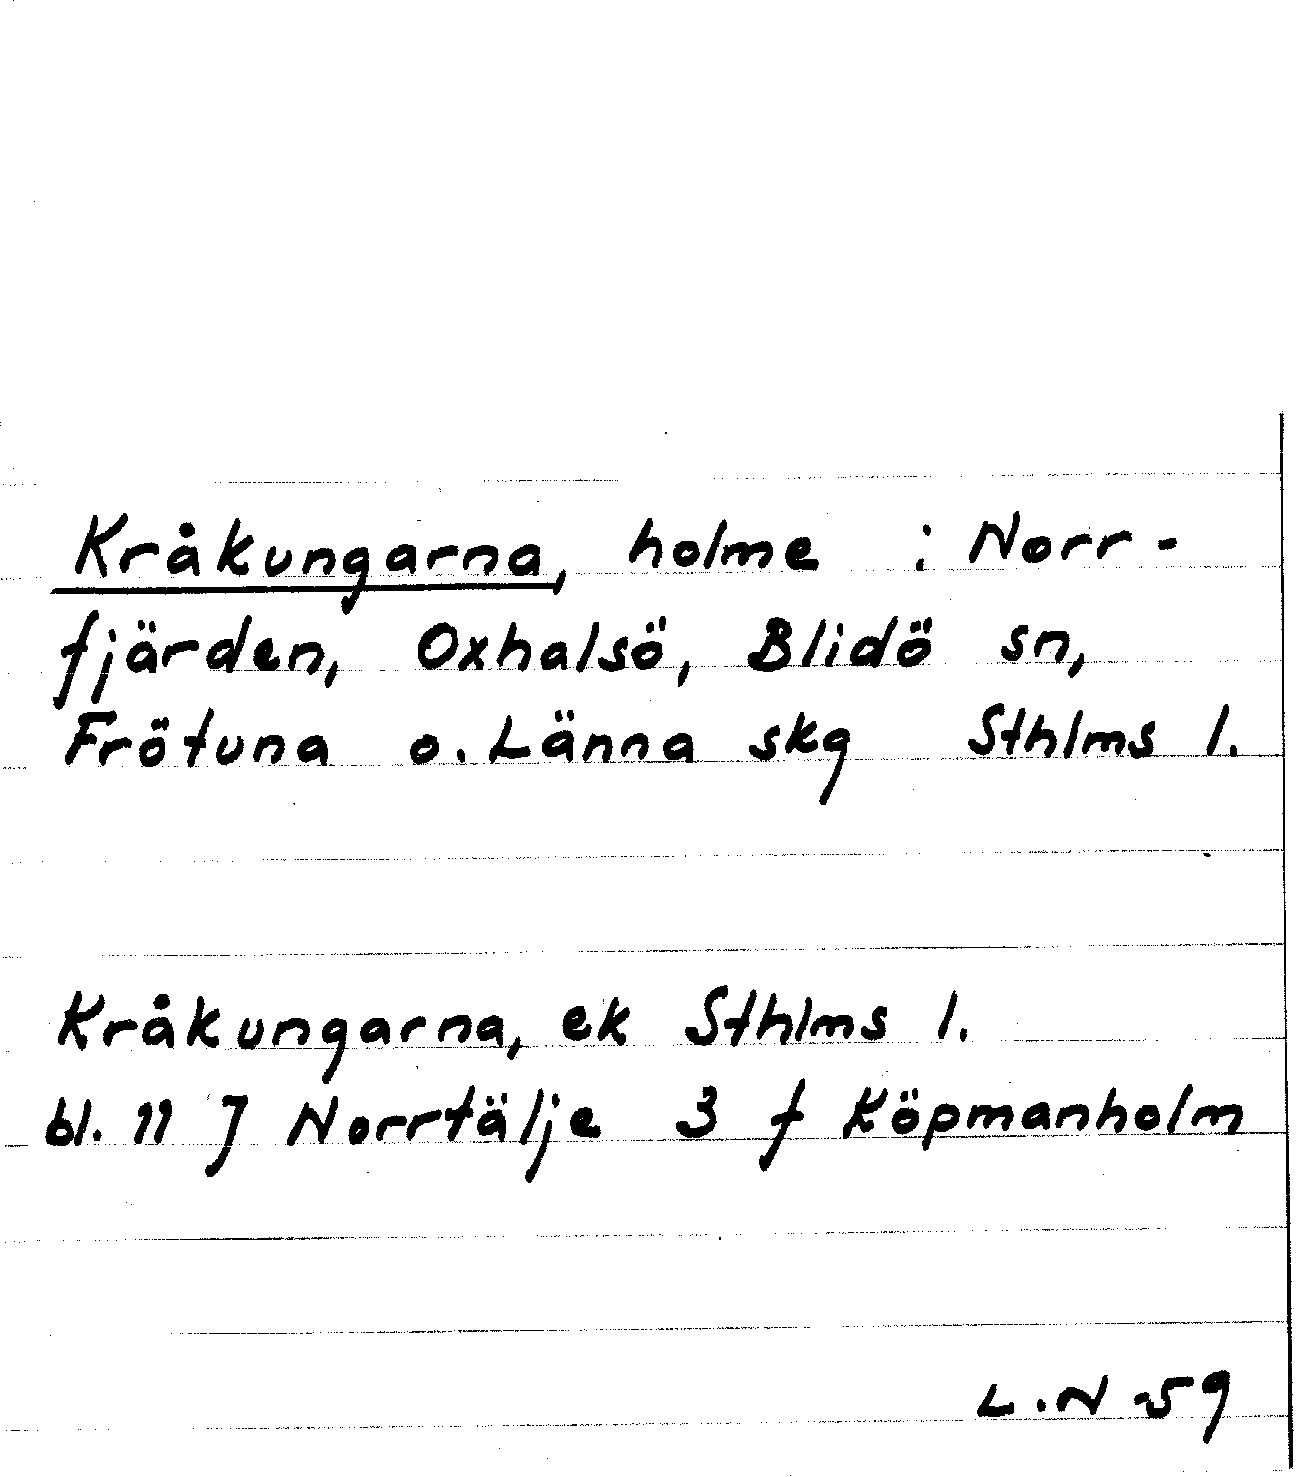 Kråkungarna, holme i Norr-
fjärden, Oxhalsö, Blidö sn,
Frötuna o. Länna skg Sthlms l.
Kråkungarna, ek Sthlms l.
bl. 11 J Norrtälje 3 f Köpmanholm
L.N -59